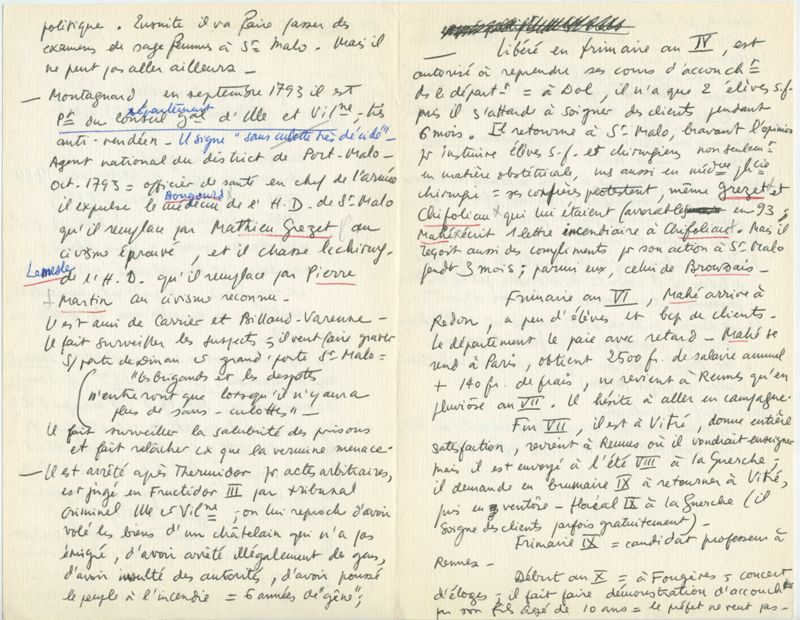 politique. Ensuite il va faire passer des
examens de sage femmes à St Malo. Mais il
ne peut pas aller ailleurs _
_ Montagnard en septembre 1793 il est
département
Pt du conseil Gal d'Ille et Vilne, très
anti-vendéen _ Il signe "sans culotte très décidé" _
Agent national du district de Port-Malo _
Oct. 1793 = officier de santé en chef de l'armée
Bougourd
il expulse le médecin de l'H.D. de St Malo
qu'il remplace par Mathieu Grezet au
civisme éprouvé, et il chasse le chirurg.
Lemesle
de l'H.D. qu'il remplace par Pierre
Martin au civisme reconnu _
Il est ami de Carrier et Billaud-Varenne _
Il fait surveiller les suspects ; il veut faire graver
s/ porte de Dinan et grand'porte St Malo =
"les brigands et les despotes
n'entreront que lorsqu'il n'y aura
plus de sans-culottes" _
Il fait surveiller la salubrité des prisons
et fait relâcher cx que la vermine menace _
_ Il est arrêté après Thermidor pr actes arbitraires,
est jugé en Fructidor III par tribunal
criminel Ille et Vilne ; on lui reproche d'avoir
volé les biens d'un châtelain qui n'a pas
émigré, d'avoir arrêté illégalement des gens,
d'avoir insulté des autorités, d'avoir poussé
le peuple à l'incendie = 6 années de "gêne" ;
_ Libéré en frimaire an IV, est
autorisé à reprendre ses cours d'accoucht
ds le départt = à Dol, il n'a que 2 élèves s.f.
puis il s'attarde à soigner des clients pendant
6 mois. Il retourne à St Malo, bravant l'opinion
pr instruire élèves s.f. et chirurgiens non seulemt
en matière obstétricale, ms aussi en
chirurgie = ses confrères protestent, même Grezet et
Chifoliau qui lui étaient favorables en 93 ;
Mahé écrit 1 lettre incendiaire à Chifoliau. Mais il
reçoit aussi des compliments pr son action à St Malo
pendt 3 mois ; parmi eux, celui de Broussais _
Frimaire an VI, Mahé arrive à
Redon, a peu d'élèves et bcp de clients _
le département le paie avec retard _ Mahé se
rend à Paris, obtient 2500 fr. de salaire annuel
+ 140 fr. de frais, ne revient à Rennes qu'en
pluviôse an VII. Il hésite à aller en campagne _
Fin VII, il est à Vitré, donne entière
satisfaction, revient à Rennes où il voudrait enseigner
mais il est envoyé à l'été VIII à la Guerche ;
il demande en brumaire IX à retourner à Vitré,
puis en ventôse _ floréal IX à la Guerche (il
soigne des clients parfois gratuitement) _
Frimaire IX = candidat professeur à
Rennes _
Début an X = à Fougères = concert
d'éloges ; il fait faire démonstration d'accoucht
par son fils âgé de 10 ans = le préfet ne veut pas _